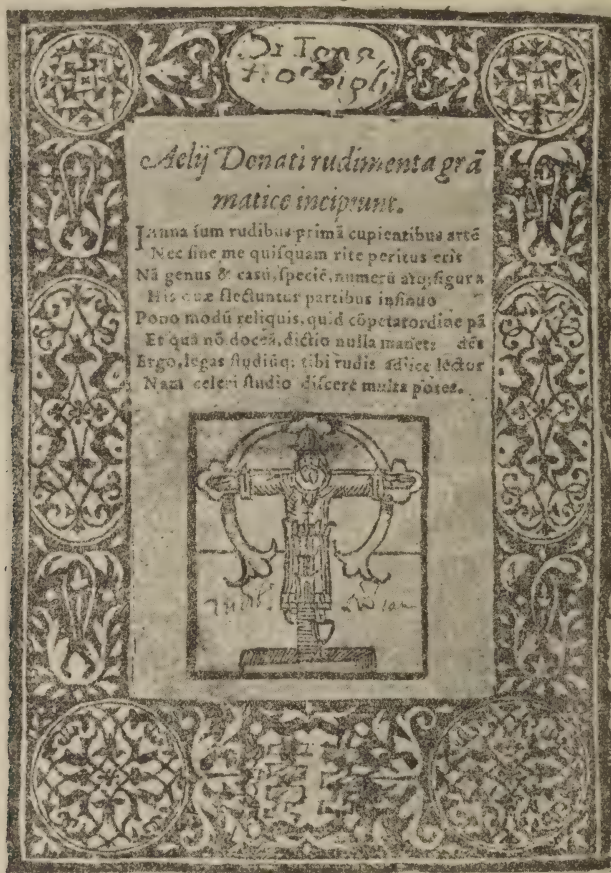 Aelij Donati rudimenta grã
matice incipiunt.
Ianua ſum rudibus primã cupientibus artẽ
Nec ſine me quiſquam rite peritus erit
Nã genus & caſũ, ſpeciẽ, numerũ atq; figurã
His quæ flectuntur partibus inſinuo
Pono modũ reliquis, quid cõpetat ordine pã
Et quã nõ doceã, dictio nulla manet: dẽs
Ergo, legas ſtudiũq; tibi rudis adiice lector
Nam celeri ſtudio diſcere multa potes.